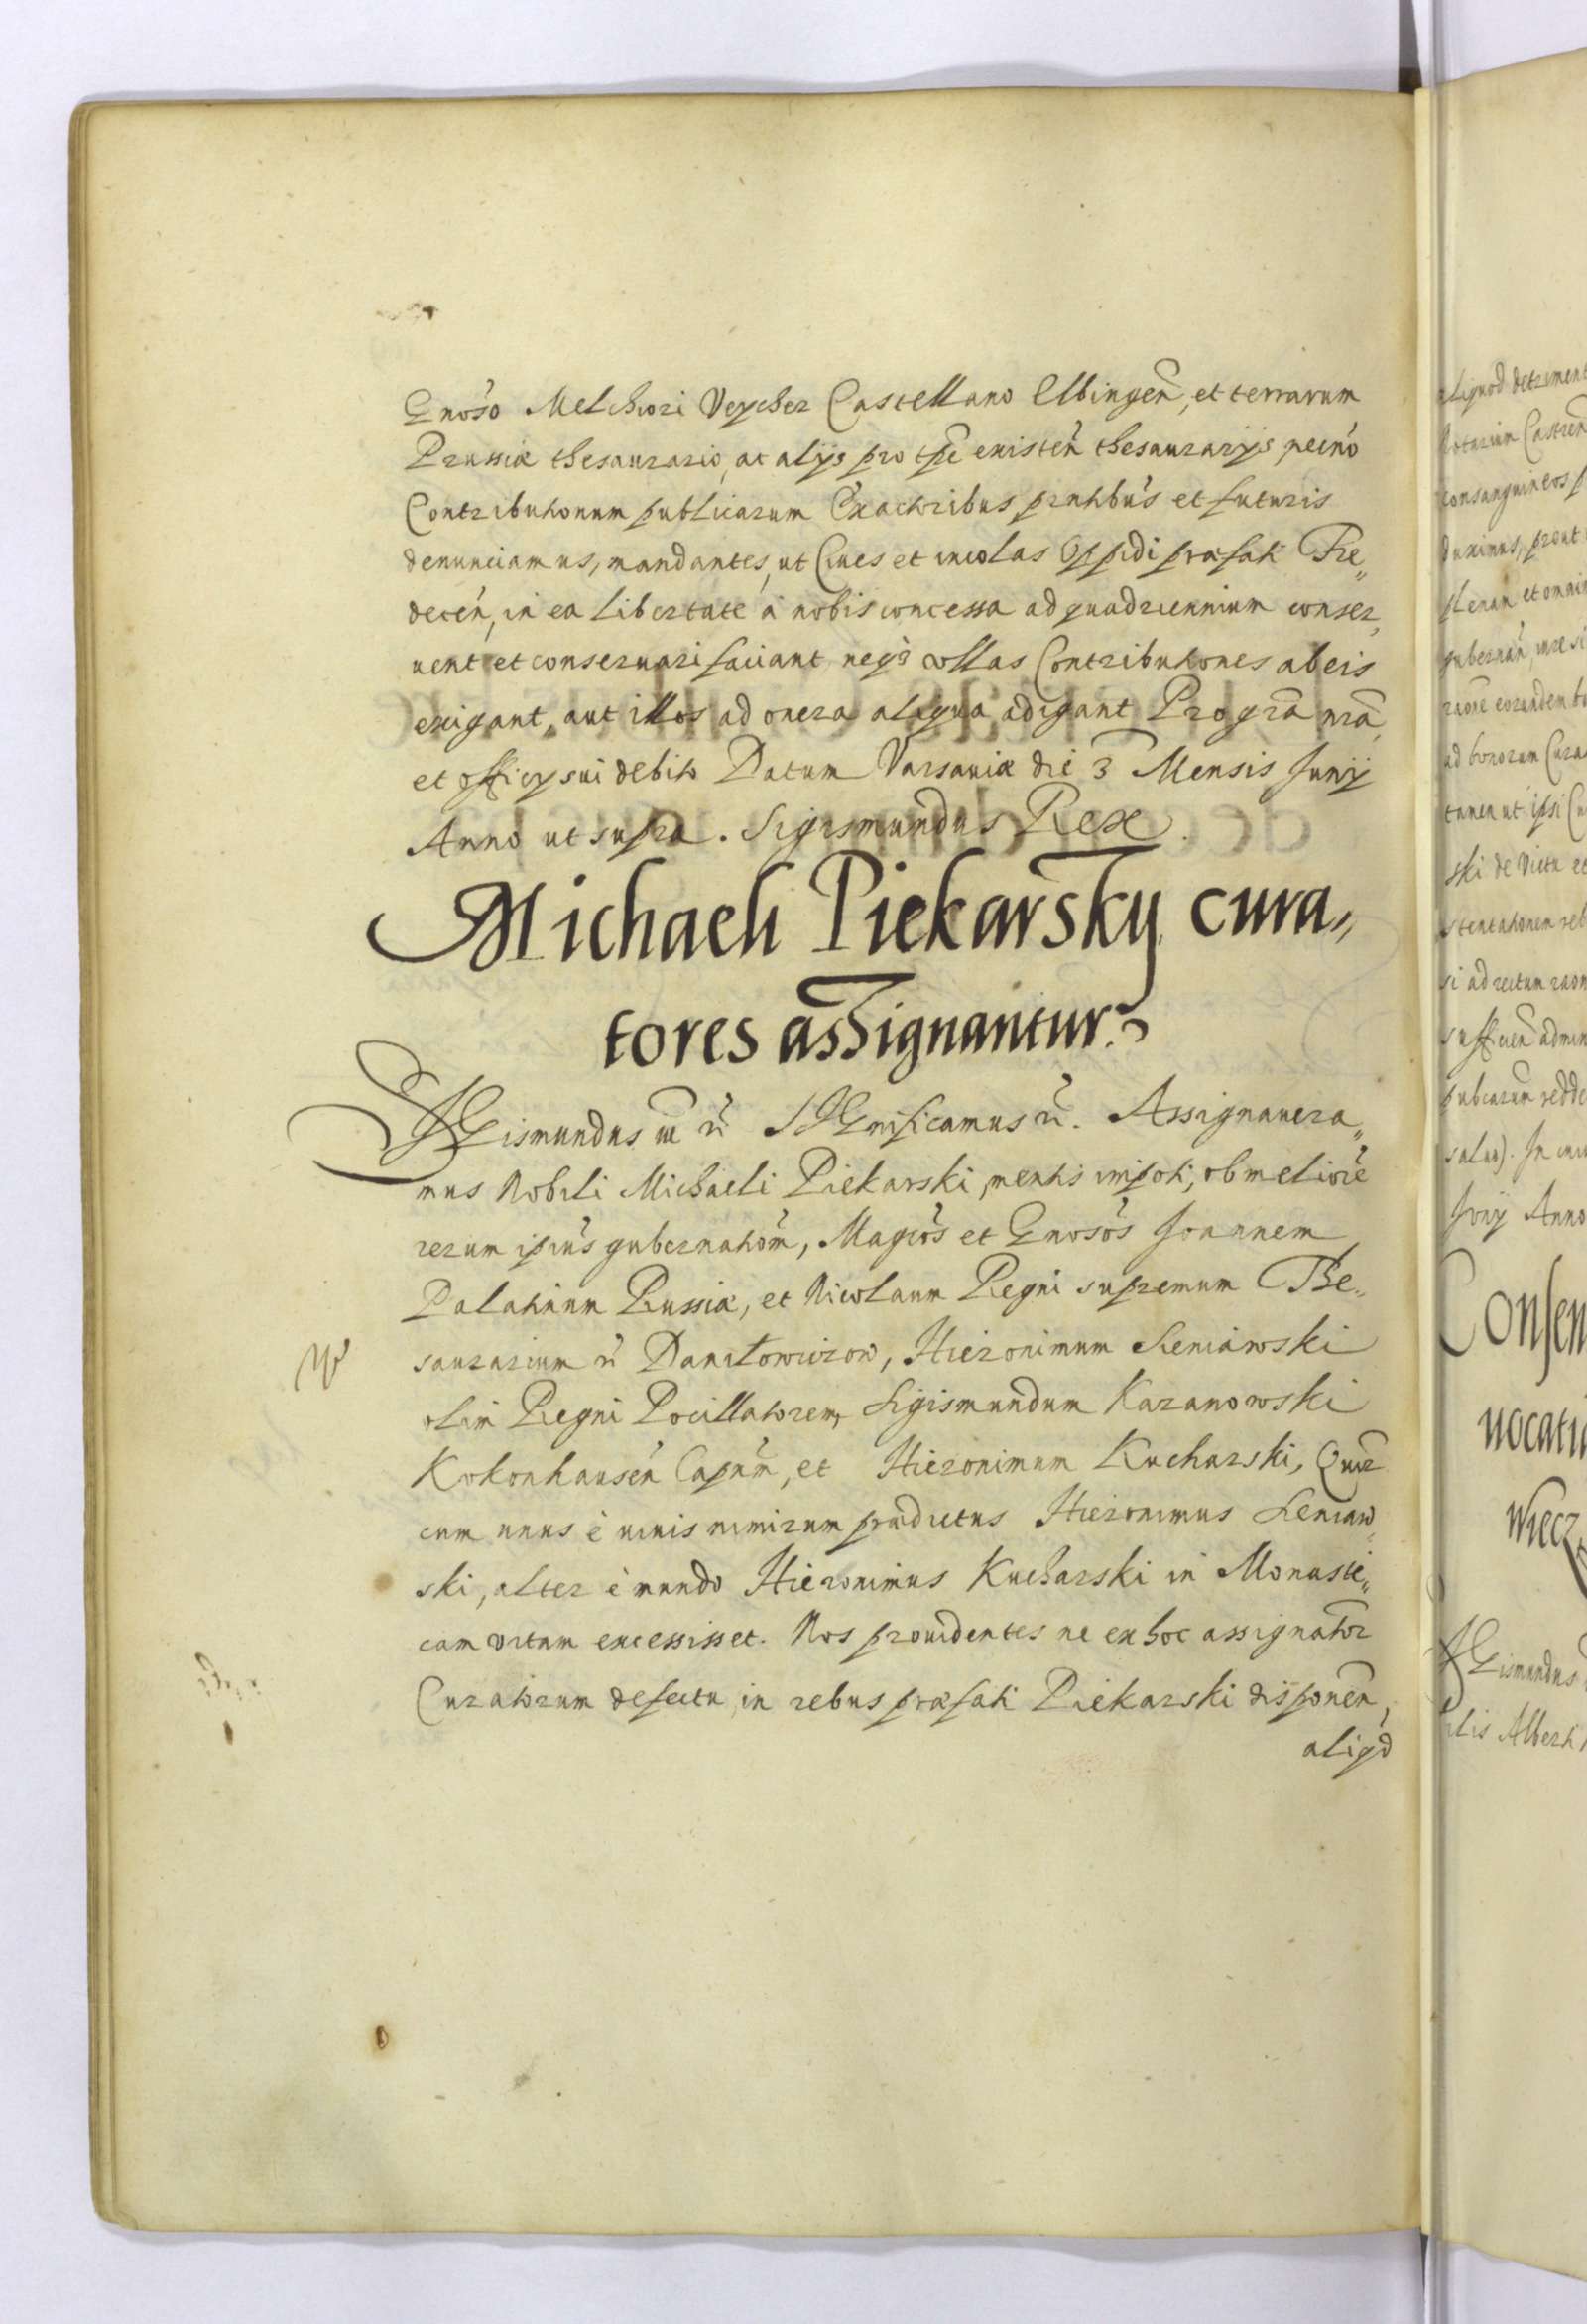 Gnoso Melchiori Veycher Castellano Elbingen, et terrarum
Prussiæ thesaurario, ac alijs pro tpe existen thesaurarijs, necno
Contributionum publicarum Exactoribus pntibus et futuris
denunciamus, mandantes, ut Ciues et incolas Oppidi præfati Fre„
decen, in ea libertate à nobis concessa ad quadriennium conser„
uent et conseruari faciant neq3 ullas Contributiones ab eis
exigant, aut illos ad onera aliqua adigant Pro gra nra,
et officij sui debito Datum Varsauiæ die 3 Mensis Junij
Anno ut supra. Sigismundus Rex.
Michaeli Piekarsky cura„
tores assignantur.
SIGismundus III etc. SIGnificamus etc. Assignauera„
mus Nobili Michaeli Piekarski, mentis impoti, ob meliore
rerum ipius gubernatiom, Magcos et Gnosos Joannem
Palatinum Russiæ, et Nicolaum Regni supremum The„
saurarium etc. Daniłowiczow, Hieronimum Sieniawski
olim Regni Pocillatorem, Sigismundum Kazanowski
Kokonhausen Capnm, et Hieronimum Kucharski, Quor
cum unus è uiuis nimirum prædictus Hieronimus Sieniaw„
ski, alter è mundo Hieronimus Kucharski in Monasti„
cam vitam excessisset. Nos prouidentes ne ex hoc assignator
Curatorum defectu, in rebus præfati Piekarski disponen,
aliqd
aliquod detriment
Notarium Castren
consanguineos p
duximus, prout
plenam et omni
gubernan, iure si
raone eorundem bo
ad bonorum Cura
tamen ut ipsi Cu
ski de victu et
stentationem reb
si ad rectam raon
sufficien admin
pubicarum redde
saluo). In cuiu
Junij Anno
Consen
uocati
Wiecz
SIGismundus
ilis Alberti